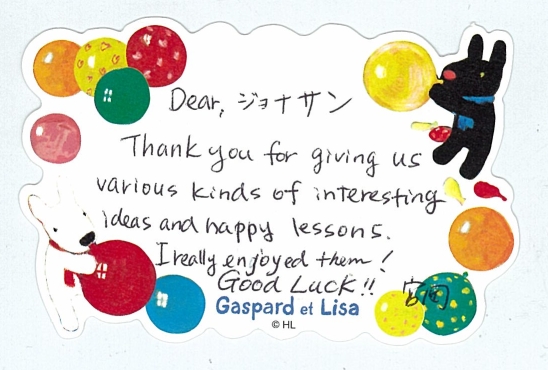 Dear, ジョナサン
Thank you for giving us
various kinds of interesting
ideas and happy lessons.
I really enjoyed them!
Good Luck!! 宮岡
Gaspard et Lisa
© HL